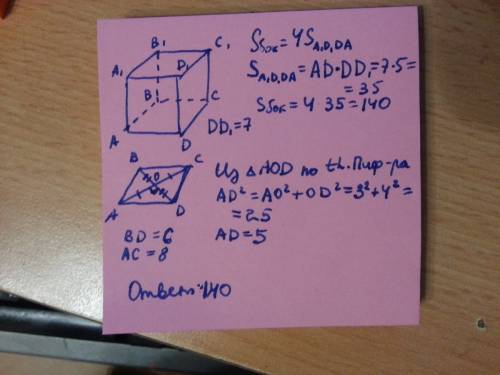 B₁ C₁
A₁ D₁
B C
A D
DD₁=7
Sбок=4S A₁D₁DA
S A₁D₁DA=AD·DD₁=7·5=
=35
Sбок=4 35=140
B C
O
A D
BD=6
AC=8
Из △AOD по th.Пиф-ра
AD²=AO²+OD²=3²+4²=
=25
AD=5
Ответ:140